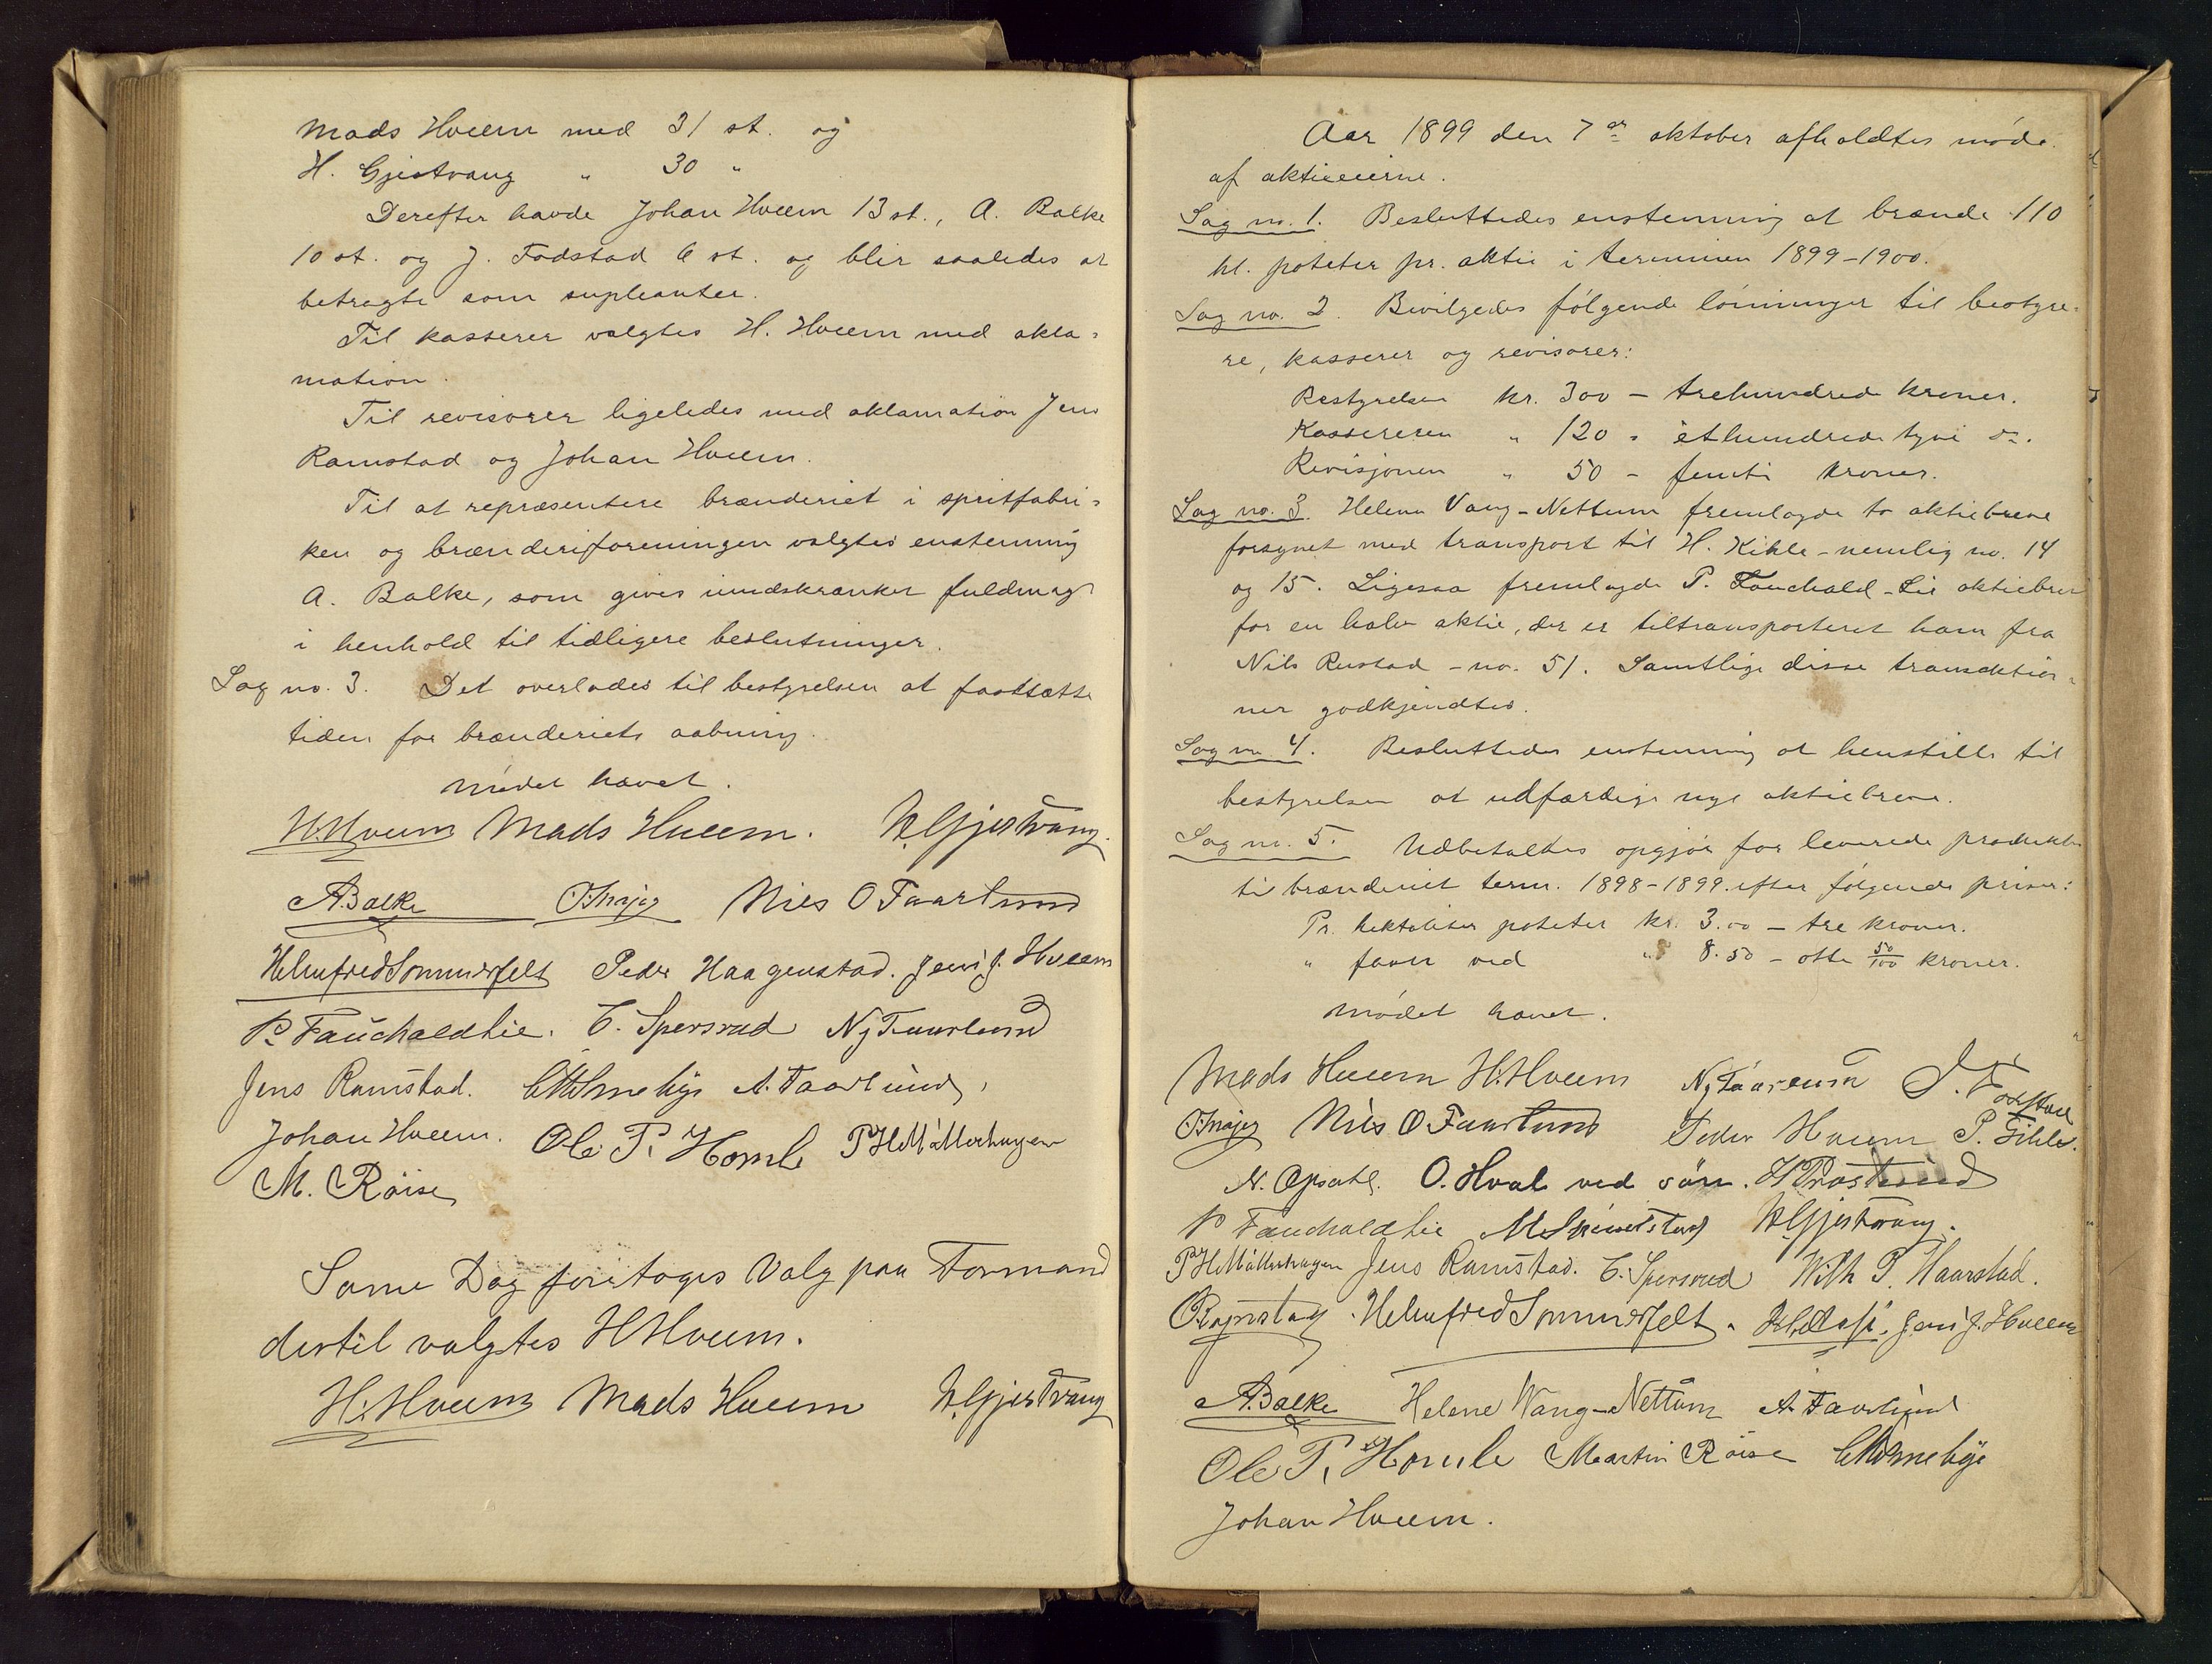 Mads Hveem med 31 st. og
H. Gjestvang " 30 "
Derefter havde Johan Hveem 13 st., A. Balke
10 st. og J. Fodstad 6 st. og blir saaledes at
betragte som supleanter.
Til kasserer valgtes H. Hveem med akla-
mation.
Til revisorer ligeledes med aklamation Jens
Ramstad og Johan Hveem.
Til at repræsentere brænderiet i spritfabri-
ken og brænderiforeningen valgtes enstemmig
A. Balke, som gives inndskrænket fuldmagt
i henhold til tidligere beslutninger.
Sag no. 3. Det overlades til bestyrelsen at fastsætte
tiden for brænderiets aabning.
Mødet hævet.
H. Hveem Mads Hveem. H. Gjestvang.
A. Balke Nils O Faarlund
Helmfred Sommerfelt Peder Haagenstad. Jens J. Hveem
P. Fauchald Lie. C. Spersrud Nj Faarlund
Jens Ramstad. A. Faarlund,
Johan Hveem. Ole P. Homle P H Møllerhagen
M. Röise
Same Dag foretoges Valg paa Formand
dertil valgtes H Hveem.
H. Hveem Mads Hveem H. Gjestvang
Aar 1899 den 7de oktober afholdtes møde
af aktieeierne.
Sag no. 1. Besluttedes enstemmig at brænde 110
hl. poteter pr. aktie i terminen 1899-1900.
Sag no. 2. Bevilgedes følgende lønninger til bestyre-
re, kasserer og revisorer:
Bestyrelsen kr. 300 - trehundrede kroner.
Kassereren " 120 - ethundrede tyve do.
Revisjonen " 50 - femti kroner.
Sag no. 3. Helene Vang-Nettum fremlagde to aktiebreve
forsynet med transport til H. Kihle - nemlig no. 14
og 15. Ligesaa fremlagde P. Fauchald-Lie aktiebrev
for en halv aktie, der er tiltransporteret ham fra
Nils Rustad - no. 51. Samtlige disse transaktion-
ner godkjendtes.
Sag no 4. Besluttedes enstemmig at henstille til
bestyrelsen at udfærdige nye aktiebreve.
Sag no. 5. Udbetaltes opgjør for leverede produkter
til brænderiet term. 1898-1899. efter følgende priser:
Pr. hektoliter poteter kr. 3.00 - tre kroner.
" favn ved " 8.50 - otte 50/100 kroner.
Mødet hævet.
Mads Hveem H. Hveem Nj Faarlund J. Fodstad
Nils O Faarlund Peder Hveem P. Gihle.
N. Opsahl. O. Hval ved søn.
P Fauchald Lie H. Gjestvang.
P H Møllerhagen Jens Ramstad. C. Spersrud Wilh P. Haarstad.
Helmfred Sommerfelt. Jens J. Hveem
A. Balke Helene Wang-Nettum A. Faarlund
Ole P. Homle Martin Röise
Johan Hveem.